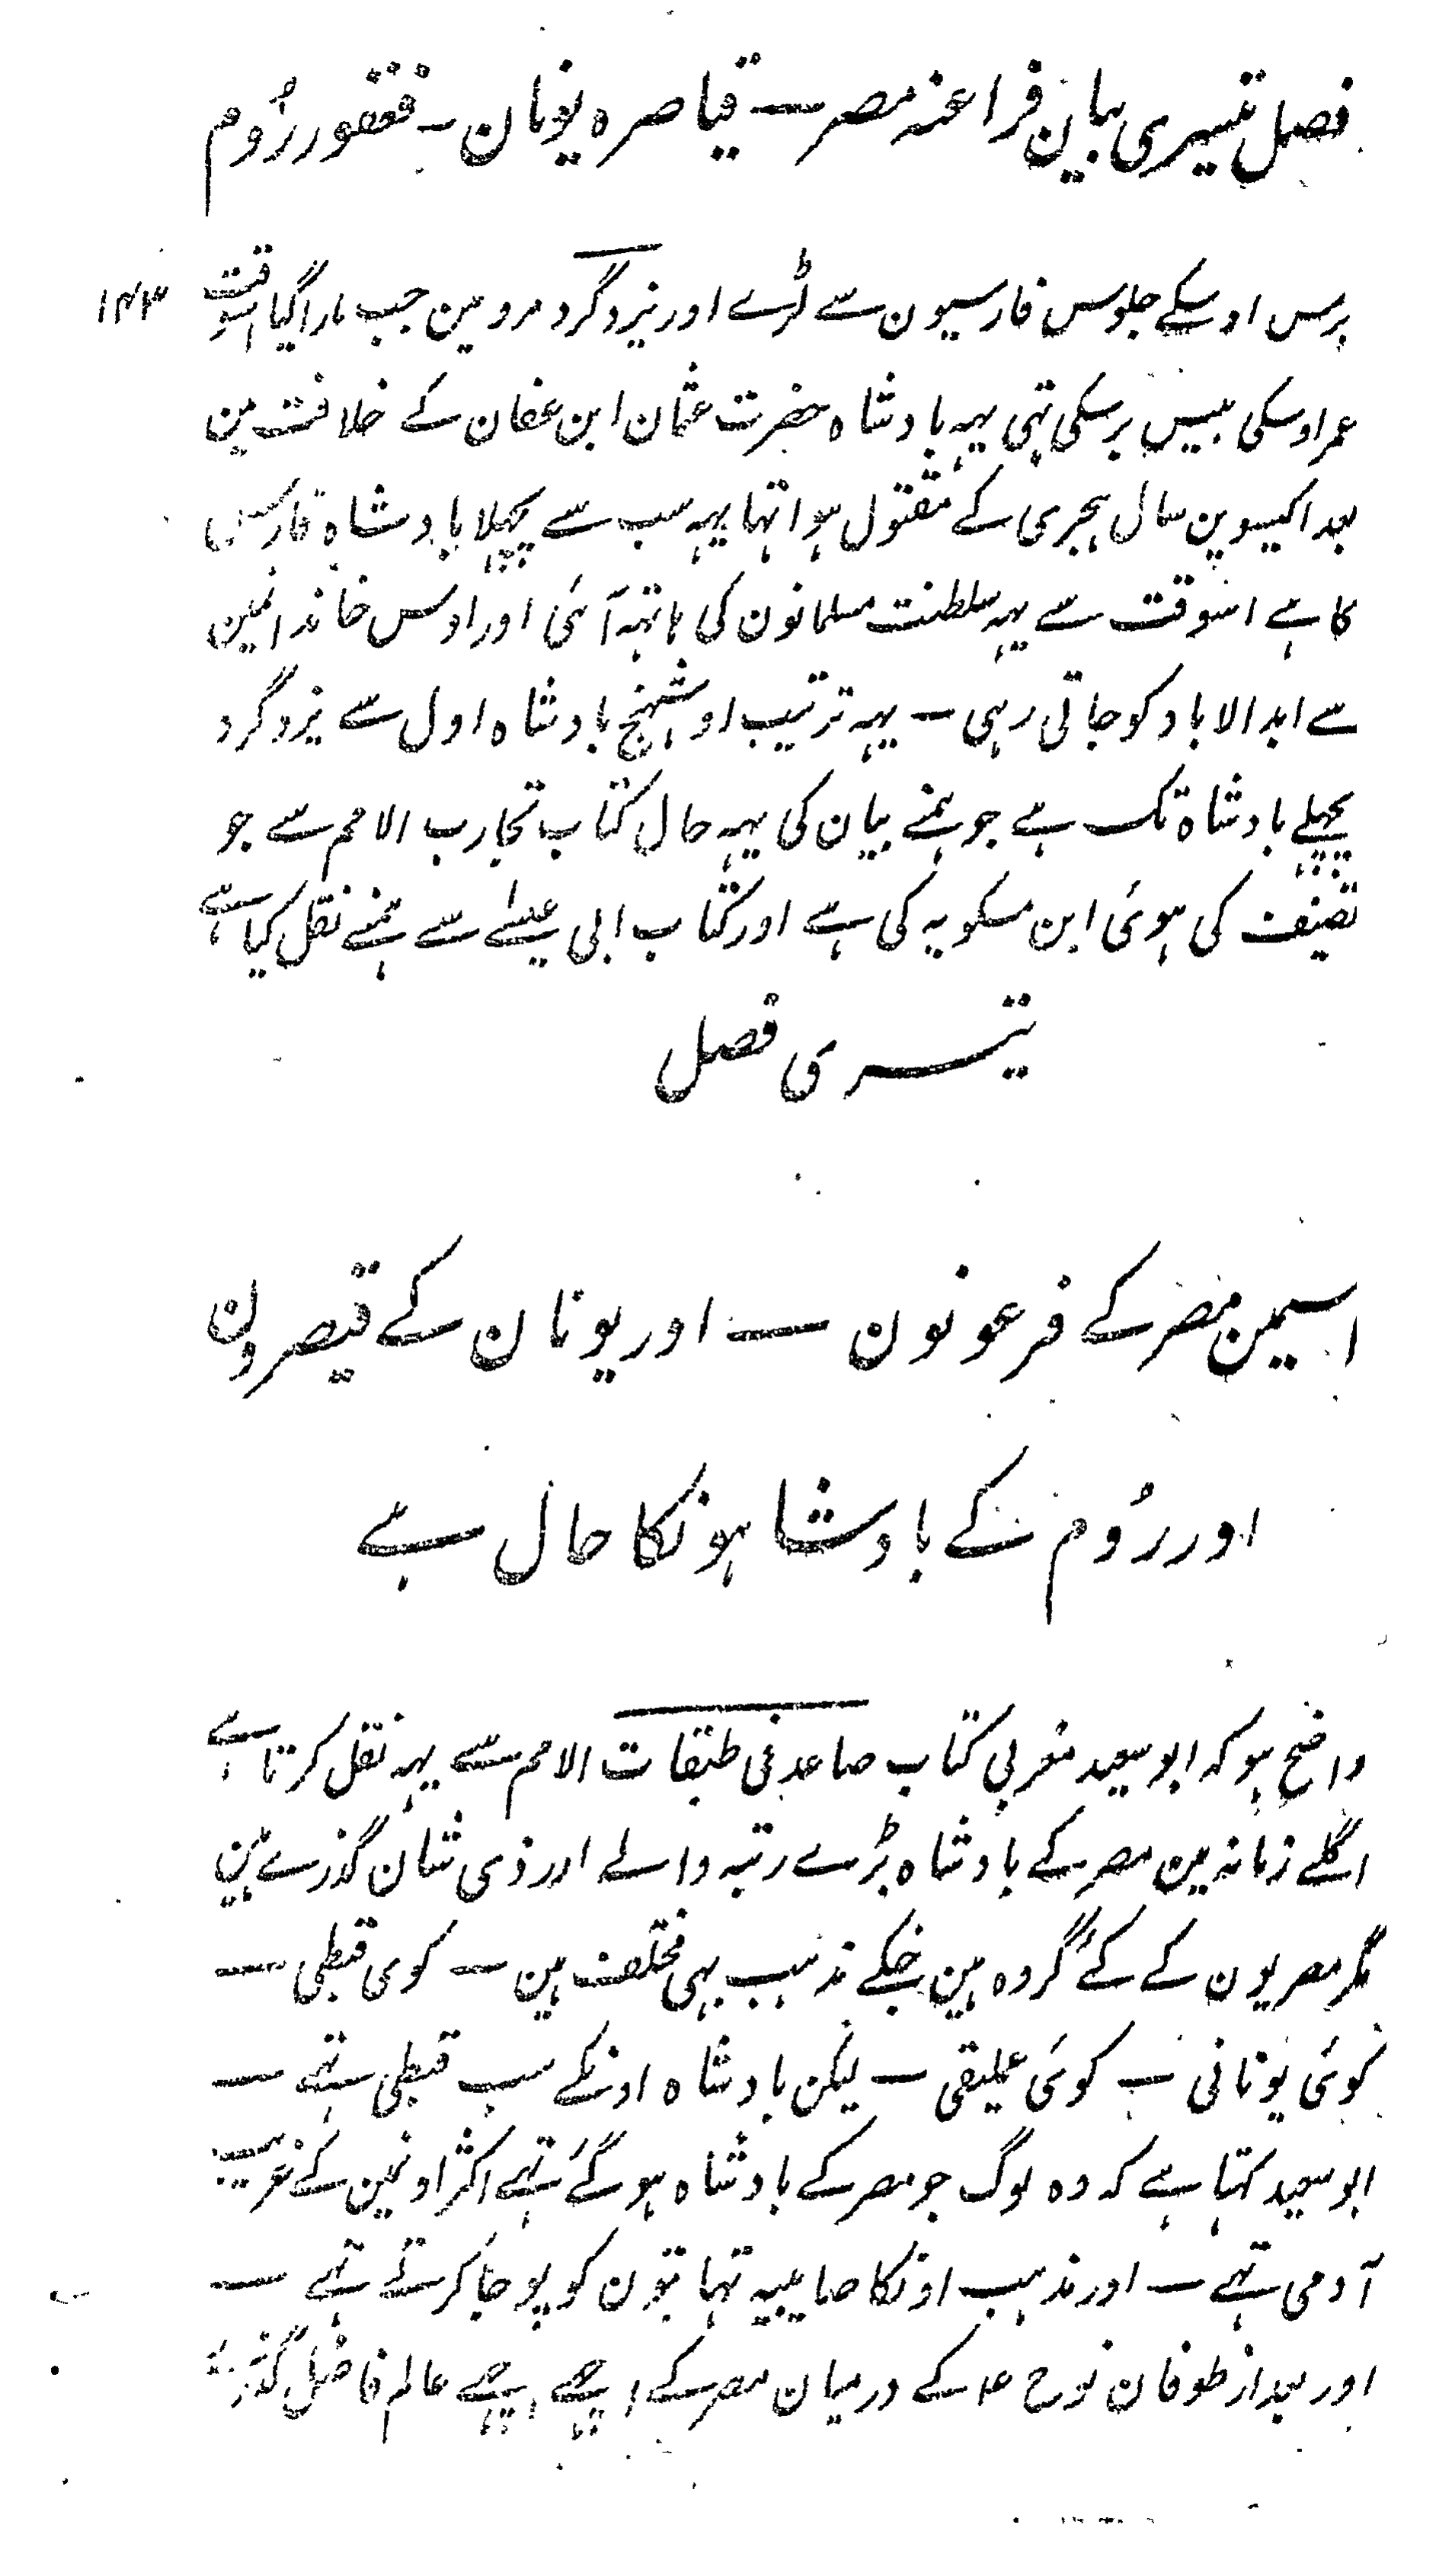 فصل تیسری بیان فراعنہ مصر — قیاصرہ یونان — فغفور رُوم
برس اوسکے جلوس فارسیون سے لڑے اور یزدگرد مرو مین جب مارا گیا اسوقت ۱۴۳
عمر اوسکی بیس برسکی تہی یہہ بادشاہ حضرت عثمان ابن عفان کے خلافت مین
بعد اکیسوین سال ہجری کے مقتول ہوا تہا یہہ سب سے پچہلا بادشاہ فارس
کا ہے اسوقت سے یہہ سلطنت مسلمانون کی ہاتہہ آئی اور اوس خاندانمین
سے ابد الاباد کو جاتی رہی — یہہ ترتیب اوشہنج بادشاہ اول سے یزدگرد
پچہلے بادشاہ تک ہے جو ہمنے بیان کی یہہ حال کتاب تجارب الامم سے جو
تصنیف کی ہوئی ابن مسکویہ کی ہے اور کتاب ابی عیسے سے ہمنے نقل کیا ہے
تیسری فصل
اسیمین مصر کے فرعونون — اور یونان کے قیصرون
اور رُوم کے بادشاہونکا حال ہے
واضح ہو کہ ابو سعید مغربی کتاب صاعد فی طبقات الامم سے یہہ نقل کرتا ہے
اگلے زمانہ مین مصر کے بادشاہ بڑے رتبہ والے اور ذی شان گذرے ہین
مگر مصریون کے کئے گروہ ہین جنکے مذہب بہی مختلف ہین — کوی قبطی —
کوئی یونانی — کوئی عملیقی — لیکن بادشاہ اونکے سب قبطی تہے —
ابو سعید کہتا ہے کہ وہ لوگ جو مصر کے بادشاہ ہو گئے تہے اکثر اونمین کے غریب
آدمی تہے — اور مذہب اونکا صابیہ تہا بتون کو پوجا کرتے تہے —
اور بعد از طوفان نوح ع کے درمیان مصر کے اچہے اچہے عالم فاضل گذرے